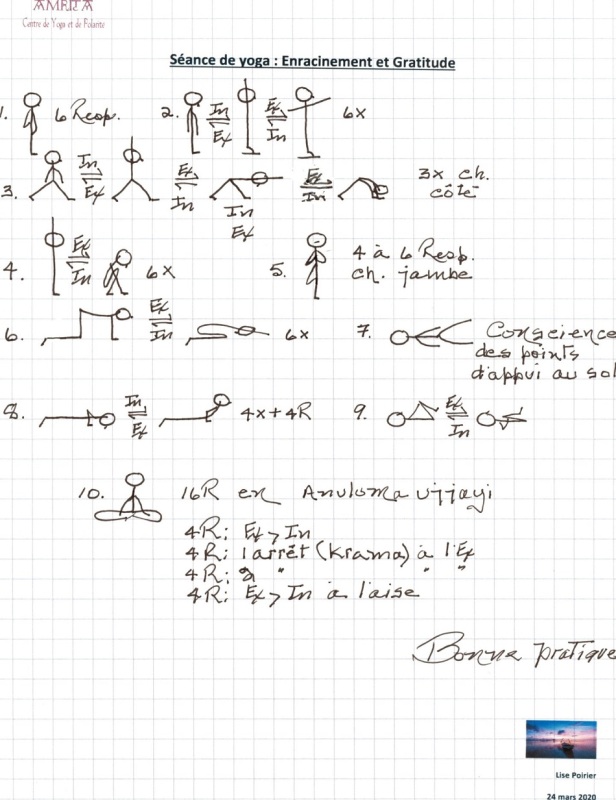 AMRITA
Centre de Yoga et de Polarité
Séance de yoga : Enracinement et Gratitude
1. 6 Resp. 2. In Ex Ex In 6x
3. In Ex Ex In In Ex Ex In 3x ch. côté
4. Ex In 6x 5. 4 à 6 Resp. ch. jambe
6. Ex In 6x 7. Conscience
des points
d'appui au sol
8. In Ex 4x+4R 9. Ex In
10. 16R en Anuloma ujjayi
4R: Ex > In
4R: 1 arrêt (Krama) à l'Ex
4R: 2 " " "
4R: Ex > In à l'aise
Bonne pratique
Lise Poirier
24 mars 2020